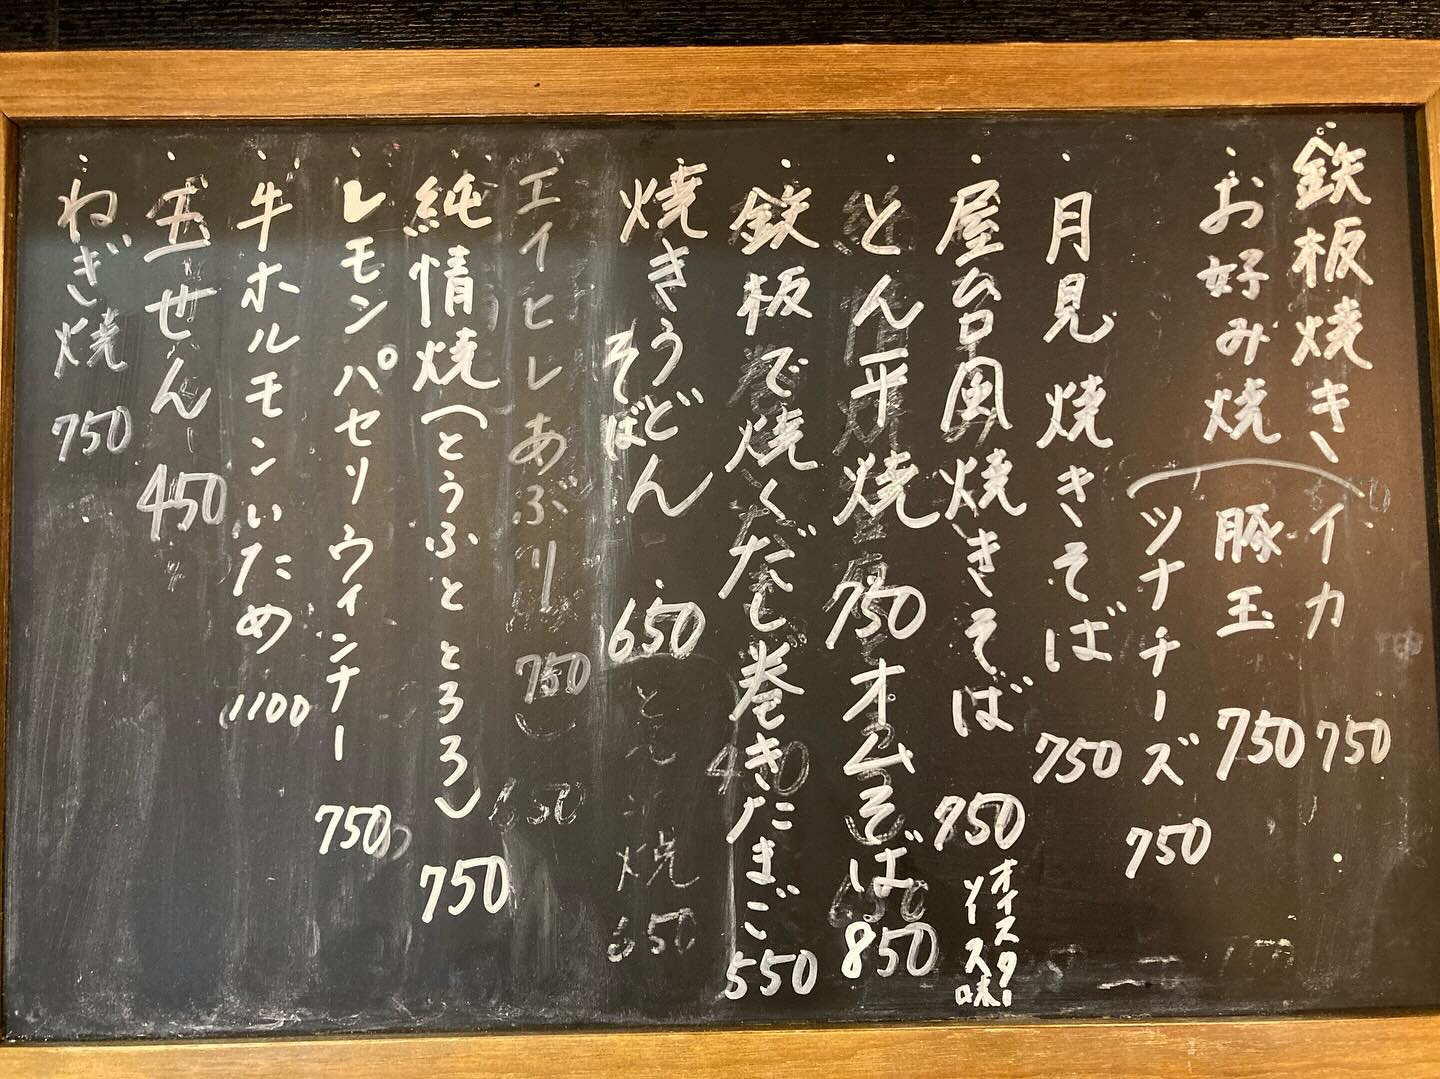 鉄板焼き イカ 750
お好み焼 豚玉 750
ツナチーズ 750
月見焼きそば 750
屋台風焼きそば 750
オイスターソース味
とん平焼 750 オムそば 850
鉄板で焼くだし巻きたまご 550
焼きうどん 650
そば
エイヒレあぶり 750
純情焼(とうふととろろ) 750
レモンパセリウィンナー 750
牛ホルモンいため 1100
玉せん 450
ねぎ焼 750